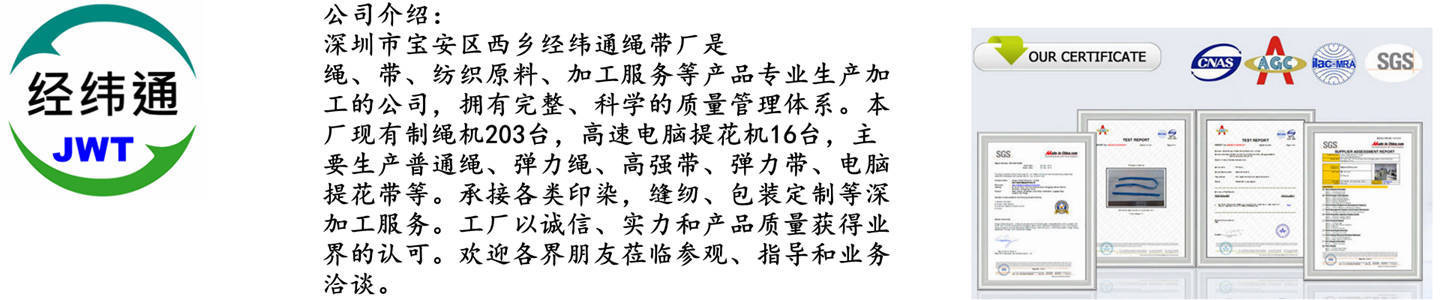 经纬通
JWT
公司介绍：
深圳市宝安区西乡经纬通绳带厂是
绳、带、纺织原料、加工服务等产品专业生产加
工的公司，拥有完整、科学的质量管理体系。本
厂现有制绳机203台，高速电脑提花机16台，主
要生产普通绳、弹力绳、高强带、弹力带、电脑
提花带等。承接各类印染，缝纫、包装定制等深
加工服务。工厂以诚信、实力和产品质量获得业
界的认可。欢迎各界朋友莅临参观、指导和业务
洽谈。
OUR CERTIFICATE
CNAS
AGC
ilac-MRA
SGS
SGS
Made-in-China.com
TEST REPORT
TEST REPORT
SGS
Made-in-China.com
SUPPLIER ASSESSMENT REPORT